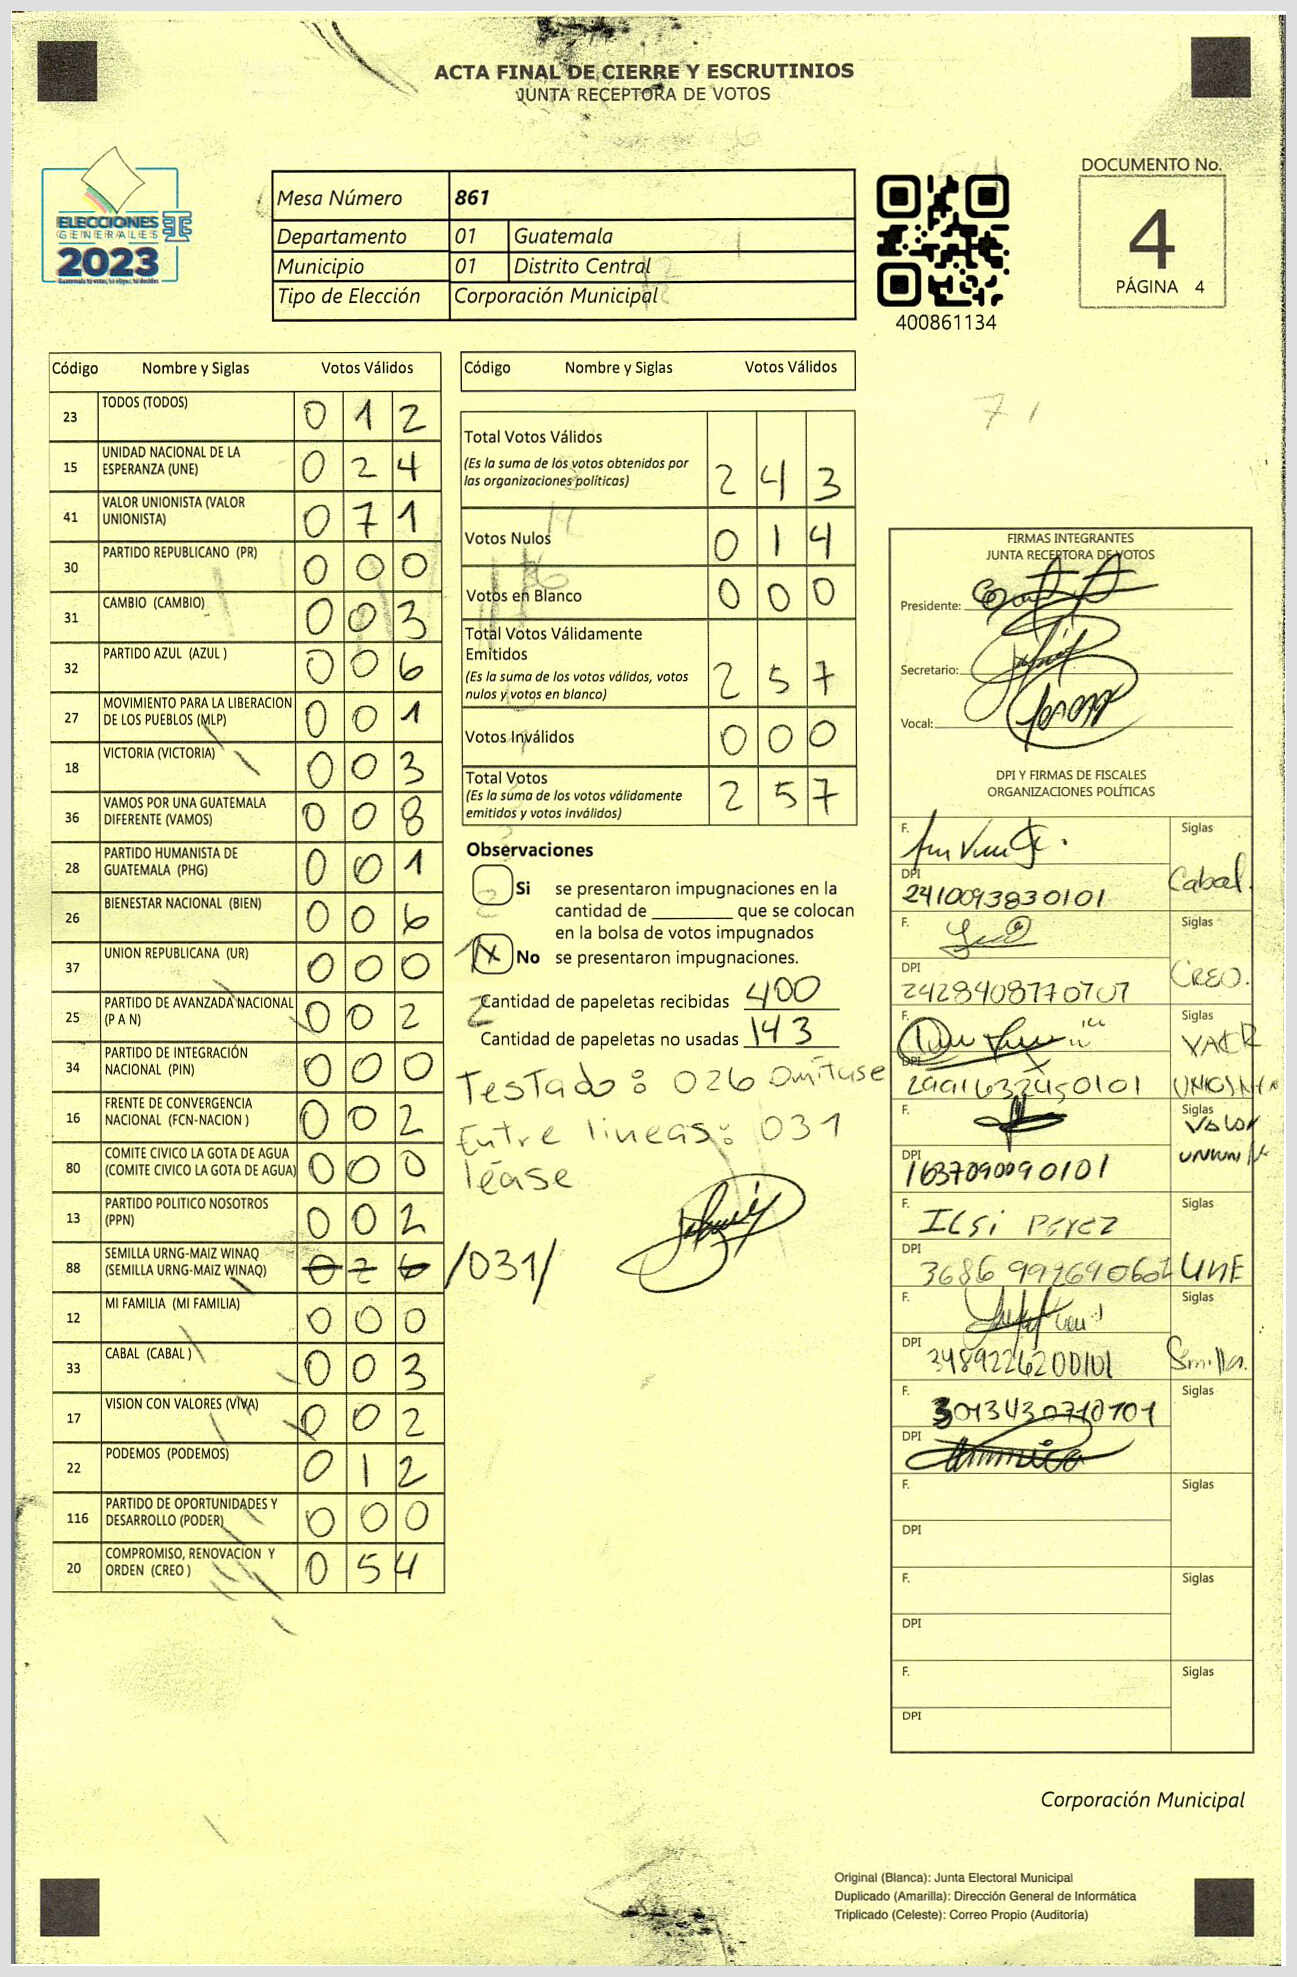 ACTA FINAL DE CIERRE Y ESCRUTINIOS
JUNTA RECEPTORA DE VOTOS
ELECCIONES
GENERALES
2023
Mesa Número 861
Departamento 01 Guatemala
Municipio 01 Distrito Central
Tipo de Elección Corporación Municipal
400861134
DOCUMENTO No.
4
PÁGINA 4
Código Nombre y Siglas Votos Válidos
23 TODOS (TODOS) 0 1 2
15 UNIDAD NACIONAL DE LA ESPERANZA (UNE) 0 2 4
41 VALOR UNIONISTA (VALOR UNIONISTA) 0 7 1
30 PARTIDO REPUBLICANO (PR) 0 0 0
31 CAMBIO (CAMBIO) 0 0 3
32 PARTIDO AZUL (AZUL ) 0 0 6
27 MOVIMIENTO PARA LA LIBERACION DE LOS PUEBLOS (MLP) 0 0 1
18 VICTORIA (VICTORIA) 0 0 3
36 VAMOS POR UNA GUATEMALA DIFERENTE (VAMOS) 0 0 8
28 PARTIDO HUMANISTA DE GUATEMALA (PHG) 0 0 1
26 BIENESTAR NACIONAL (BIEN) 0 0 6
37 UNION REPUBLICANA (UR) 0 0 0
25 PARTIDO DE AVANZADA NACIONAL (P A N) 0 0 2
34 PARTIDO DE INTEGRACIÓN NACIONAL (PIN) 0 0 0
16 FRENTE DE CONVERGENCIA NACIONAL (FCN-NACION ) 0 0 2
80 COMITE CIVICO LA GOTA DE AGUA (COMITE CIVICO LA GOTA DE AGUA) 0 0 0
13 PARTIDO POLITICO NOSOTROS (PPN) 0 0 2
88 SEMILLA URNG-MAIZ WINAQ (SEMILLA URNG-MAIZ WINAQ) 0 2 6 /031/
12 MI FAMILIA (MI FAMILIA) 0 0 0
33 CABAL (CABAL ) 0 0 3
17 VISION CON VALORES (VIVA) 0 0 2
22 PODEMOS (PODEMOS) 0 1 2
116 PARTIDO DE OPORTUNIDADES Y DESARROLLO (PODER) 0 0 0
20 COMPROMISO, RENOVACION Y ORDEN (CREO ) 0 5 4
Código Nombre y Siglas Votos Válidos
Total Votos Válidos
(Es la suma de los votos obtenidos por
las organizaciones políticas) 2 4 3
Votos Nulos 0 1 4
Votos en Blanco 0 0 0
Total Votos Válidamente
Emitidos
(Es la suma de los votos válidos, votos
nulos y votos en blanco) 2 5 7
Votos Inválidos 0 0 0
Total Votos
(Es la suma de los votos válidamente
emitidos y votos inválidos) 2 5 7
Observaciones
Si se presentaron impugnaciones en la
cantidad de ________ que se colocan
en la bolsa de votos impugnados
X No se presentaron impugnaciones.
Cantidad de papeletas recibidas 400
Cantidad de papeletas no usadas 143
Testado: 026 Omítase
Entre lineas: 031
léase
71
FIRMAS INTEGRANTES
JUNTA RECEPTORA DE VOTOS
Presidente:
Secretario:
Vocal:
DPI Y FIRMAS DE FISCALES
ORGANIZACIONES POLÍTICAS
F. Siglas
DPI 2410093830101 Cabal.
F. Siglas
DPI 2428408770707 CREO.
F. Siglas
DPI
F. Siglas
Valor
DPI 1637090090101
F. Ilsi Perez Siglas
DPI UNE
F. Siglas
DPI 3489226200101 Semilla.
F. 3013430710101 Siglas
DPI
F. Siglas
DPI
F. Siglas
DPI
F. Siglas
DPI
Corporación Municipal
Original (Blanca): Junta Electoral Municipal
Duplicado (Amarilla): Dirección General de Informática
Triplicado (Celeste): Correo Propio (Auditoría)